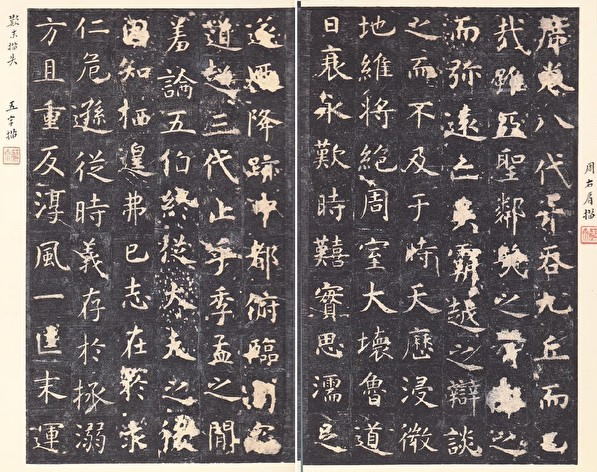 周右肩描
席卷八代并吞九丘而已
哉雖亞聖鄰幾之之
而弥遠亡吳霸越之辯談
之而不及于時天歷浸微
地維將絕周室大壞魯道
日衰永歎時囏實思濡足
遂迺降跡中都俯臨
道超三代止乎季孟之閒
羞論五伯終從大夫之後
固知栖遑弗已志在於求
仁危遜從時義存於拯溺
方且重反淳風一匡末運
歎末描失 五字描